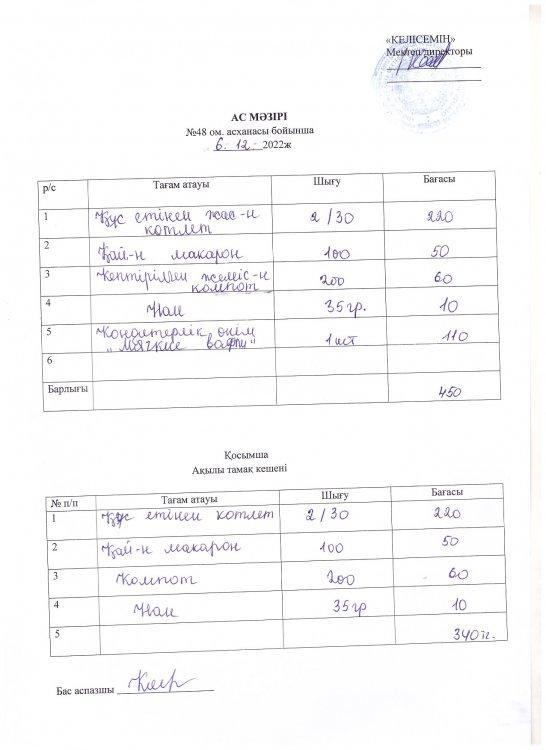 «КЕЛІСЕМІН»
Мектеп директоры
АС МӘЗІРІ
№48 ом. асханасы бойынша
6. 12. 2022ж
р/с Тағам атауы Шығу Бағасы
1 Құс етінен жас-н котлет 2/30 220
2 Қай-н макарон 100 50
3 Кептірілген жеміс-н компот 200 60
4 Нан 35 гр. 10
5 Кондитерлік өнім „мягкие вафли" 1 шт 110
6
Барлығы 450
Қосымша
Ақылы тамақ кешені
№ п/п Тағам атауы Шығу Бағасы
1 Құс етінен котлет 2/30 220
2 Қай-н макарон 100 50
3 Компот 200 60
4 Нан 35 гр 10
5 340 тг.
Бас аспазшы